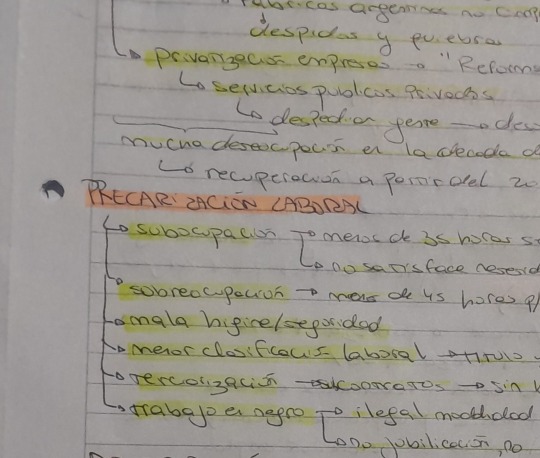 fabricas argentinas no comp
despidos y quiebras
privatización empresas → "Reforma
servicios publicos privados
despedian gente → des
mucha desocupación en la decada d
recuperación a partir del 20
PRECARIZACIÓN LABORAL
subocupación → menos de 35 horas s
no satisface necesid
sobreocupación → mas de 45 horas p/
mala higine/seguridad
menor clasificación laboral → titulo
tercerización → contratos → sin
trabajo en negro → ilegal modalidad
no jubilación, no